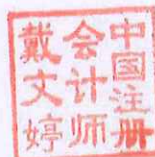 中国注册
会计师
戴文婷